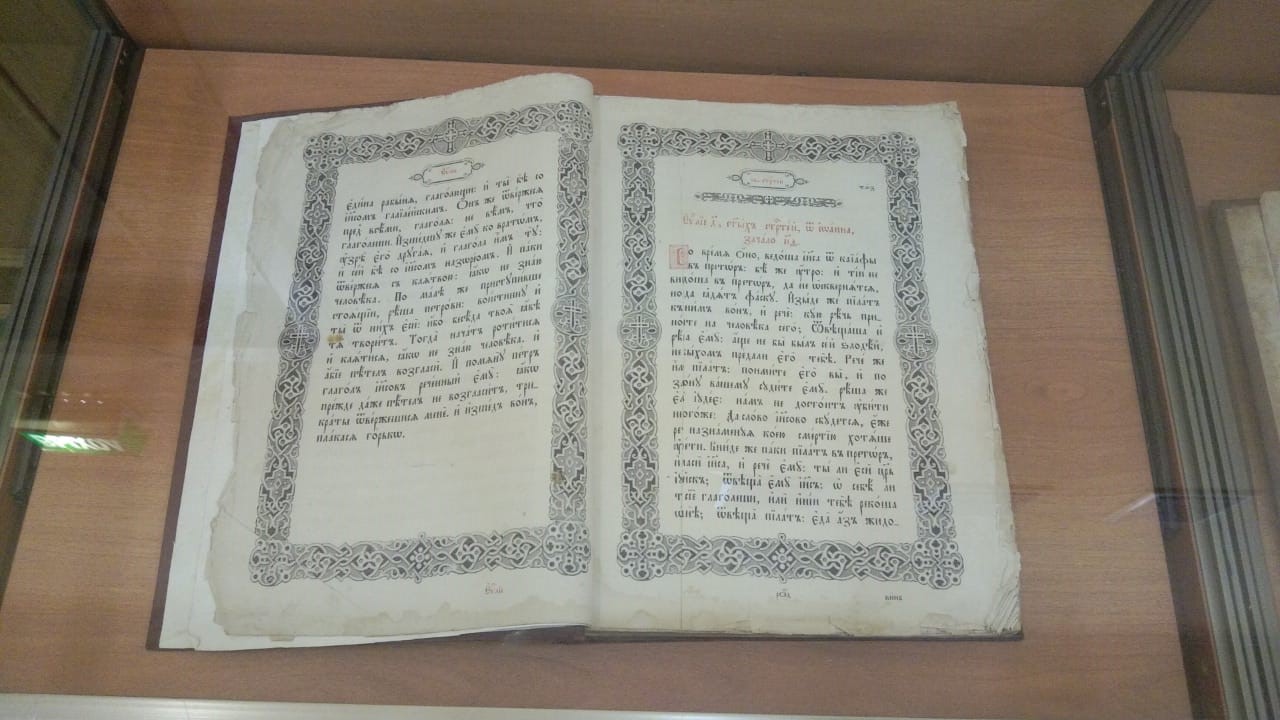 є҆ди́на рабы́нѧ, глаго́лющи: и҆ ты̀ бѣ̀ со
і҆и҃сомъ галїле́йскимъ. Ѻ҆́нъ же ѿве́ржесѧ
пред̾ всѣ́ми, глаго́лѧ: не вѣ́мъ, что̀
глаго́леши. И҆зше́дшꙋ же є҆мꙋ̀ ко вратѡ́мъ,
ᲂу҆зрѣ̀ є҆го̀ дрꙋга́ѧ, и҆ глаго́ла и҆̀мъ тꙋ̀:
и҆ се́й бѣ̀ со і҆и҃сомъ назѡре́омъ. И҆ па́ки
ѿве́ржесѧ съ клѧ́твою: ꙗ҆́кѡ не зна́ю
человѣ́ка. По ма́лѣ же пристꙋпи́вше
стоѧ́щїи, рѣ́ша петро́ви: вои́стиннꙋ и҆
ты̀ ѿ ни́хъ є҆сѝ: и҆́бо бесѣ́да твоѧ̀ ꙗ҆́вѣ
тѧ̀ твори́тъ. Тогда̀ нача́тъ роти́тисѧ
и҆ клѧ́тисѧ, ꙗ҆́кѡ не зна́ю человѣ́ка. и҆
а҆́бїе пѣ́тель возгласѝ. И҆ помѧнꙋ̀ пе́тръ
глаго́лъ і҆и҃совъ рече́нный є҆мꙋ̀: ꙗ҆́кѡ
пре́жде да́же пѣ́тель не возгласи́тъ, три-
кра́ты ѿве́ржешисѧ менѐ. и҆ и҆зше́дъ во́нъ,
пла́касѧ го́рькѡ.
Є҆ѵ҃лїе д҃, ст҃ы́хъ стр҇те́й, ѿ і҆ѡа́нна,
зача́ло н҃д.
Во вре́мѧ ѻ҆́но, ведо́ша і҆и҃са ѿ каїа́фы
въ прето́ръ: бѣ́ же ᲂу҆́тро: и҆ ті́и не
внидо́ша въ прето́ръ, да не ѡ҆сквернѧ́тсѧ,
но да ꙗ҆дѧ́тъ фа́скꙋ. И҆зы́де же піла́тъ
къ ни̑мъ во́нъ, и҆ речѐ: кꙋ́ю рѣ́чь при-
но́сите на человѣ́ка сего̀; Ѿвѣща́ша и҆
є҆мꙋ̀: а҆́ще не бы̀ бы́лъ се́й ѕлодѣ́й,
преда́ли є҆го̀ тебѣ̀. Рече́ же
піла́тъ: поими́те є҆го̀ вы̀, и҆ по
вашемꙋ̀ сꙋди́те є҆мꙋ̀. рѣ́ша же
і҆ꙋде́є: на́мъ не досто́итъ ᲂу҆би́ти
Да сло́во і҆и҃сово сбꙋ́детсѧ, є҆́же
назна́менꙋѧ ко́ею сме́ртїю хотѧ́ше
Вни́де же па́ки піла́тъ въ прето́ръ,
і҆и҃са, и҆ речѐ є҆мꙋ̀: ты́ ли є҆сѝ цр҃ь
є҆мꙋ̀ і҆и҃съ: ѡ҆ себѣ́ ли
глаго́леши, и҆лѝ и҆ні́и тебѣ̀ реко́ша
піла́тъ: є҆да̀ а҆́зъ жидо-